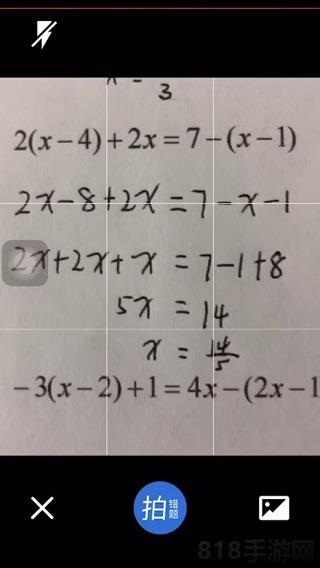 3
2(x-4)+2x=7-(x-1)
2x-8+2x=7-x-1
2x+2x+x=7-1+8
5x=14
x=14/5
-3(x-2)+1=4x-(2x-1
拍错题
818手游网